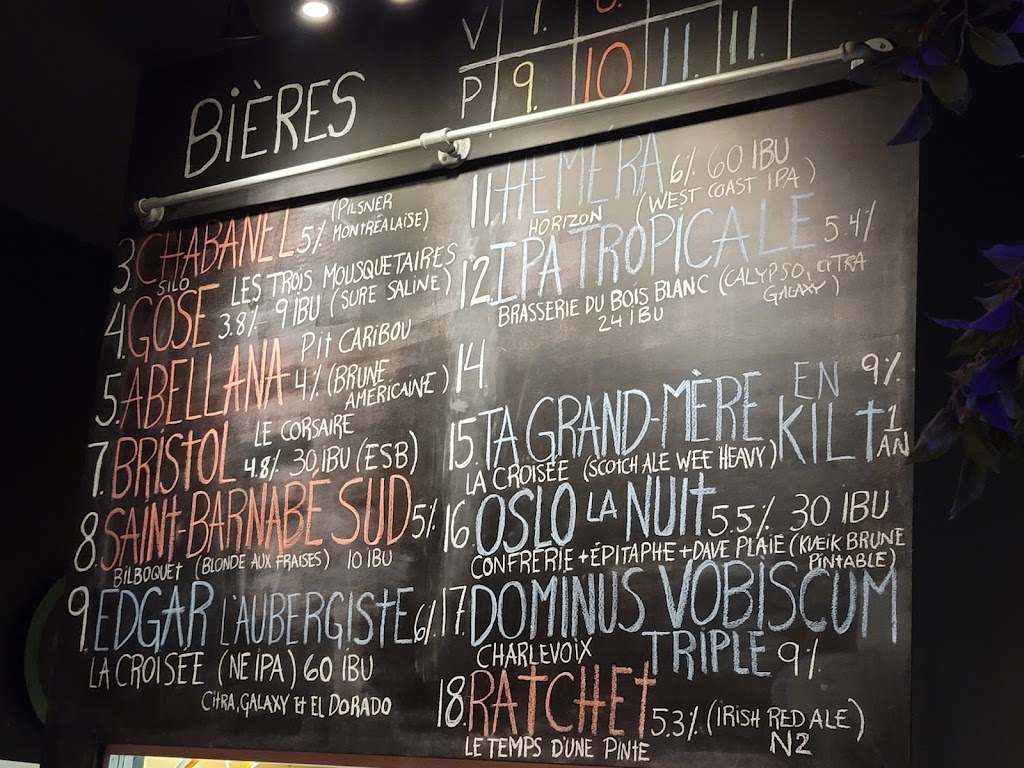 BIÈRES
V 7. 8. 11 11.
P 9. 10 11.
3. CHABANEL 5% (PILSNER
MONTRÉALAISE)
SILO
4. GOSE LES TROIS MOUSQUETAIRES
3.8% 9 IBU (SURE SALINE)
5. ABELLANA PIT CARIBOU
4% (BRUNE
AMÉRICAINE)
7. BRISTOL LE CORSAIRE
4.8% 30 IBU (ESB)
8. SAINT-BARNABÉ SUD 5%
BILBOQUET (BLONDE AUX FRAISES) 10 IBU
9. EDGAR L'AUBERGISTE 6%
LA CROISÉE (NEIPA) 60 IBU
CITRA, GALAXY ET EL DORADO
11. HÉMÉRA 6% 60 IBU
HORIZON (WEST COAST IPA)
12. IPA TROPICALE 5.4%
BRASSERIE DU BOIS BLANC (CALYPSO, CITRA
GALAXY)
24 IBU
14.
15. TA GRAND-MÈRE EN KILT 9%
1 AN
LA CROISÉE (SCOTCH ALE WEE HEAVY)
16. OSLO LA NUIT 5.5% 30 IBU
CONFRÉRIE + ÉPITAPHE + DAVE PLAIE (KVEIK BRUNE
PINTABLE)
17. DOMINUS VOBISCUM
CHARLEVOIX TRIPLE 9%
18. RATCHET 5.3% (IRISH RED ALE)
LE TEMPS D'UNE PINTE N2